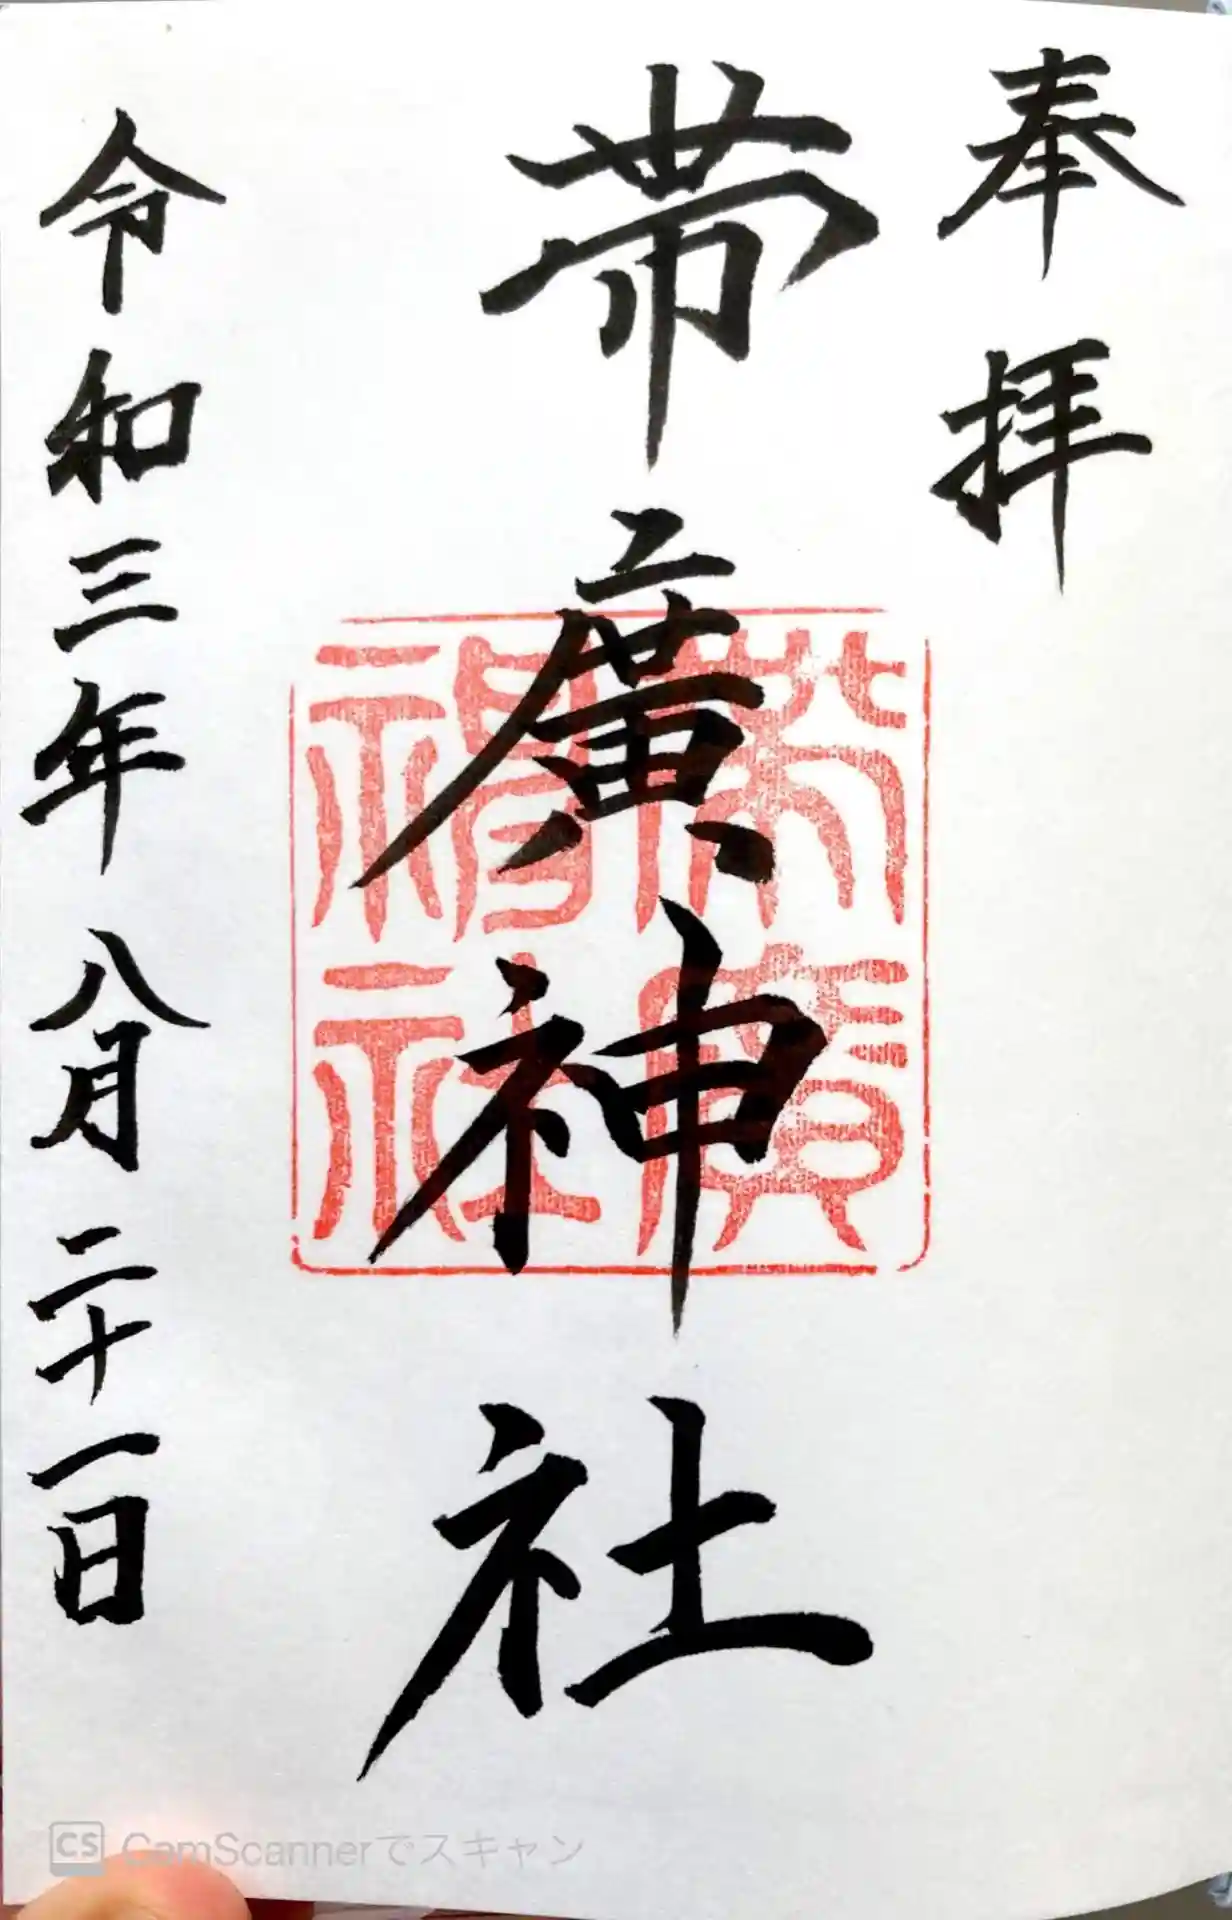 奉拝
帯廣神社
帯廣神社
令和三年八月二十一日
CS CamScannerでスキャン